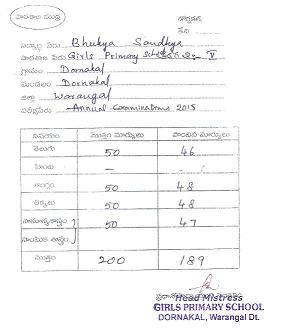 పాఠశాల ముద్ర
తేది
విద్యార్థి పేరు Bhukya Sandhya
పాఠశాల పేరు Girls Primary School తరగతి:- V
గ్రామం Dornakal
మండలం Dornakal
జిల్లా Warangal
పరీక్షపేరు Annual Examinations 2015
విషయం మొత్తం మార్కులు పొందిన మార్కులు
తెలుగు 50 46
హిందీ —
ఆంగ్లం 50 48
లెక్కలు 50 48
సామాన్యశాస్త్రం 50 47
సాంఘిక శాస్త్రం
మొత్తం 200 189
Head Mistress
GIRLS PRIMARY SCHOOL
DORNAKAL, Warangal Dt.